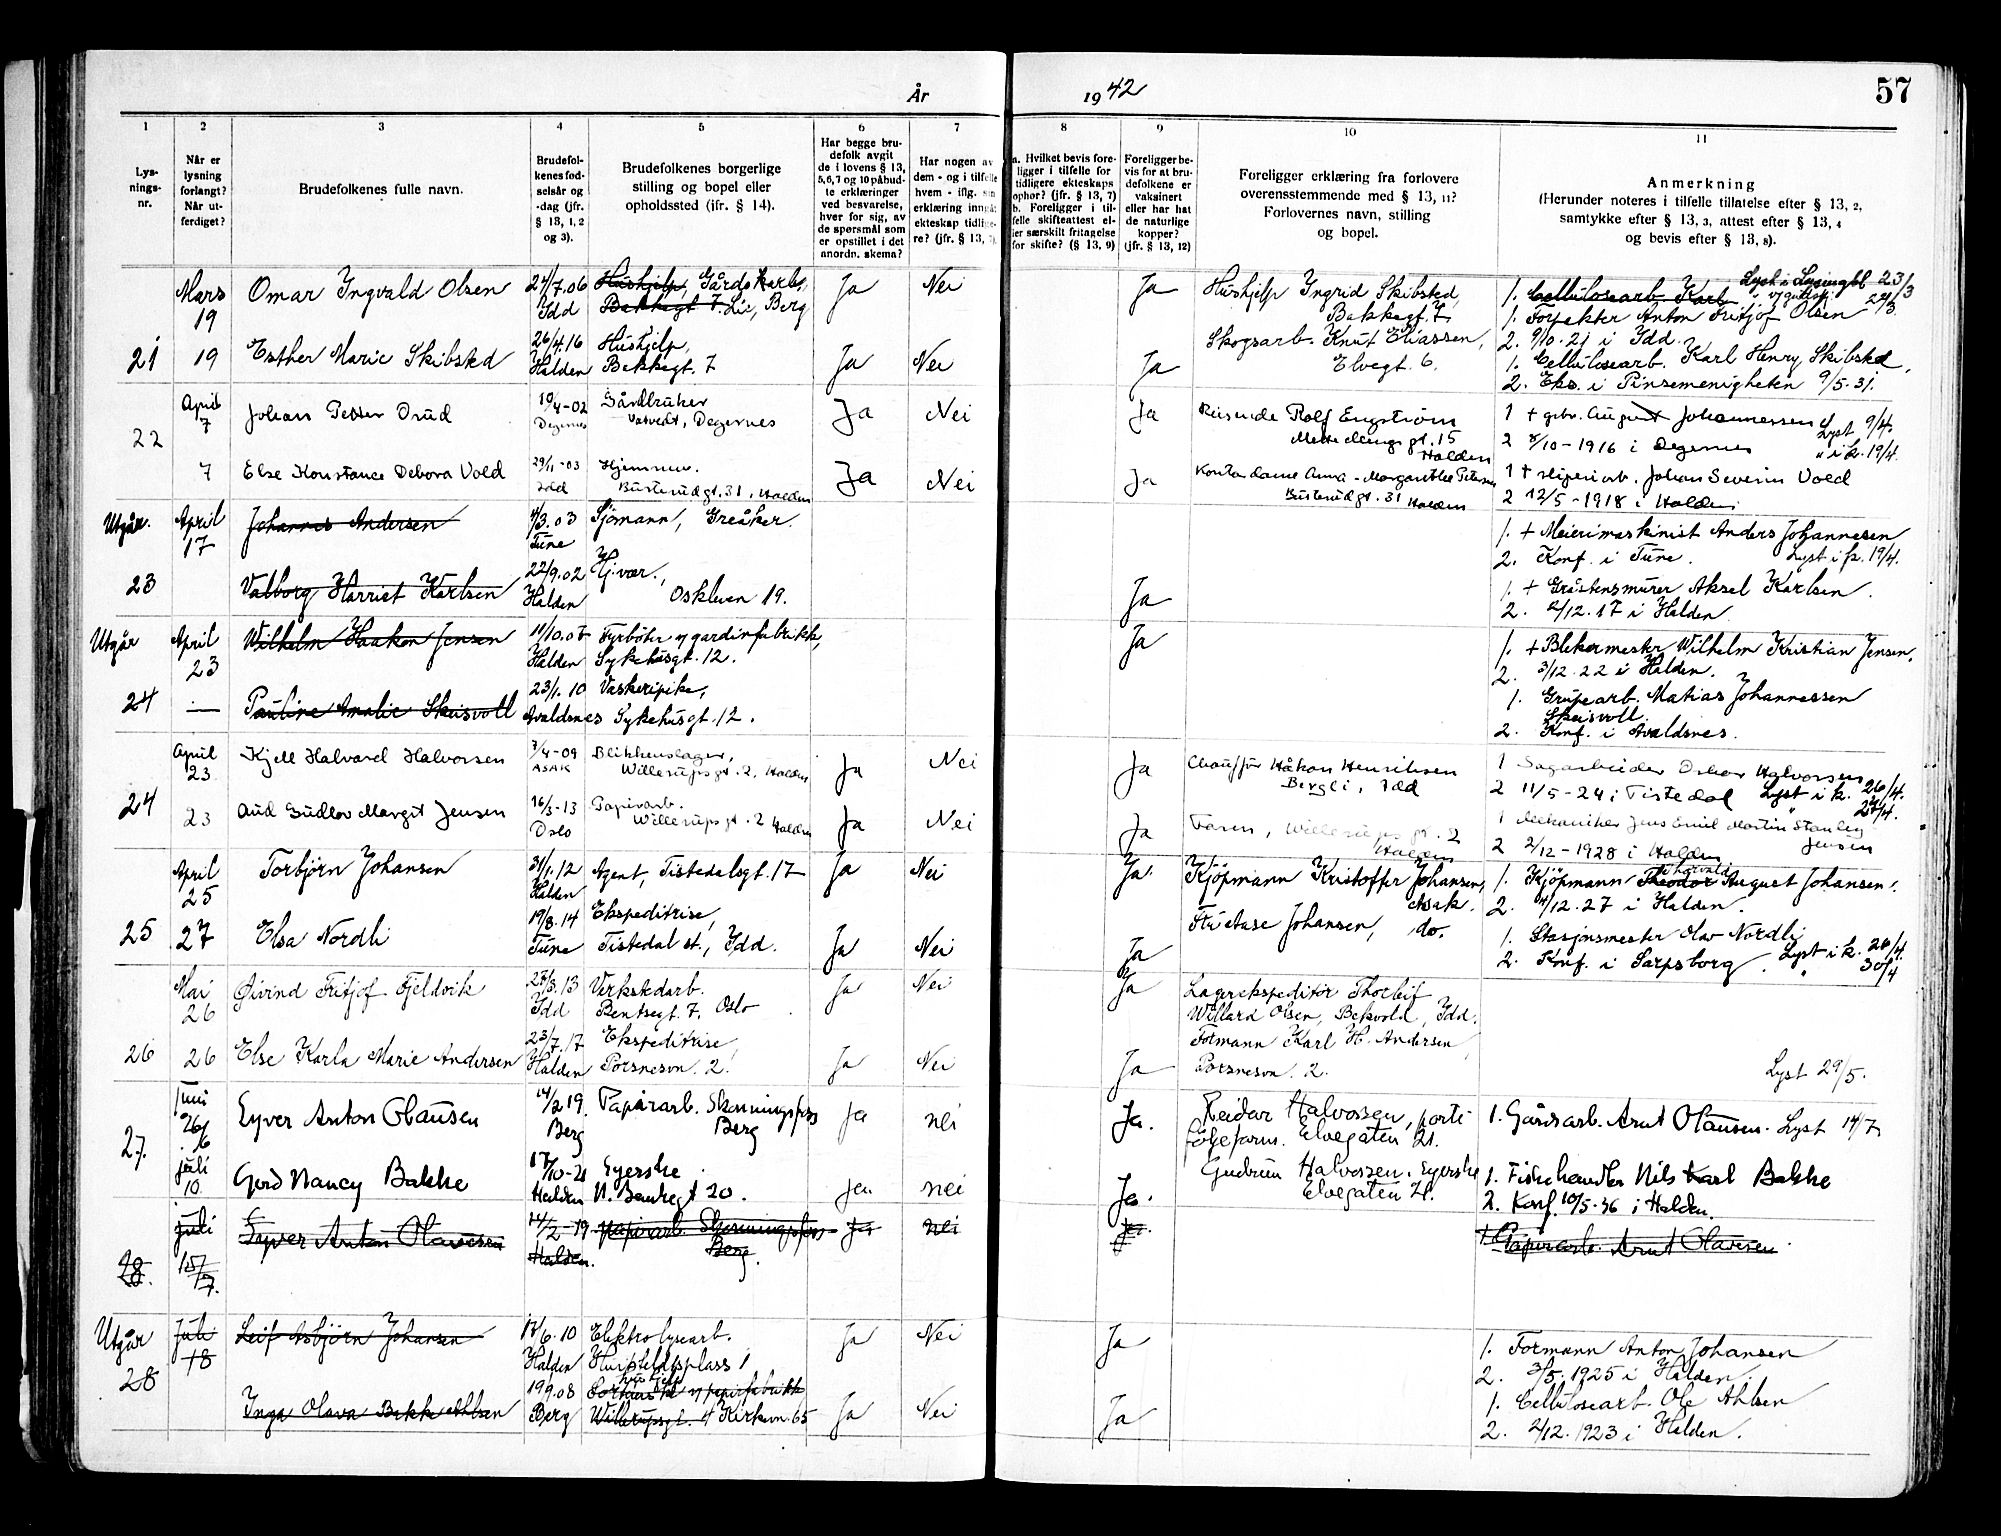 År 1942
57
1
2
3
4
5
6
7
8
9
10
11
Lys-
nings-
nr.
Når er
lysning
forlangt?
Når ut-
ferdiget?
Brudefolkenes fulle navn.
Brudefol-
kenes fød-
selsår og
-dag (jfr.
§ 13, 1, 2
og 3).
Brudefolkenes borgerlige
stilling og bopel eller
opholdssted (ifr. § 14).
Har begge bru-
defolk avgit
de i lovens § 13,
5,6,7 og 10 påbud-
te erklæringer
ved besvarelse,
hver for sig, av
de spørsmål som
er opstillet i det
anordn. skema?
Har nogen av
dem - og i tilfelle
hvem - iflg. sin
erklæring inngå
ekteskap tidlige-
re? (jfr. § 13,
a. Hvilket bevis fore-
ligger i tilfelle for
tidligere ekteskaps
ophør? (jfr. § 13, 7)
b. Foreligger i til-
felle skifteattest el-
ler særskilt fritagelse
for skifte? (§ 13, 9)
Foreligger be-
vis for at bru-
defolkene er
vaksinert
eller har hat
de naturlige
kopper?
(jfr. § 13, 12)
Foreligger erklæring fra forlovere
overensstemmende med § 13, 11?
Forlovernes navn, stilling
og bopel.
Anmerkning
(Herunder noteres i tilfelle tillatelse efter § 13, 2,
samtykke efter § 13, 3, attest efter § 13, 4
og bevis efter § 13, 8).
Mars
19
Omar Ingvald Olsen
24/7.06
Idd
Hushjelp, Gårdskarl,
Bakkegt 7. Lie, Berg
Ja
Nei
Ja
Hushjelp Ingrid Skibsted,
Bakkegt. 7
Skogsarb. Knut Eliassen,
Elvegt. 6.
Lyst i Lysingbl 23/3
1. Cellulosearb. Karl
1. Forpakter Anton Fritjof Olsen
2. 9/10.21 i Idd.
21
19
Esther Marie Skibsted
26/4.16
Halden
Hushjelp,
Bakkegt. 7
Ja
Nei
Ja
1. Cellulosearb. Karl Henry Skibsted,
2. Eks. i Pinsemenigheten 9/5.31.
22
April
7
Johan Petter Orud
19/4-02
Degernes
Gårdbruker
Vatvedt, Degernes
Ja
Nei
Ja
Reisende Rolf Engström
15
Halden
1 + gbr. August Johannessen
Lyst 9/4.
2 8/10-1916 i Degernes
" i k. 19/4.
7
Else Konstance Debora Vold
29/11-03
Idd
Hjemmev.
Busterudgt. 31, Halden
Ja
Nei
Ja
Kontordame Anna-Margarethe Petersen
Busterudgt. 31 Halden
1 + Sliperiarb. Johan Severin Vold
2 12/5-1918 i Halden
Utgår.
April
17
Johannes Andersen
4/3.03
Tune
Sjömann, Greåker.
1. + Meierimaskinist Anders Johannesen
2. Konf. i Tune. Lyst i k. 19/4.
23
Valborg Harriet Karlsen
22/9.02
Halden
Hj.vær.,
Oskleven 19.
Ja
1. + Gråstensmurer Aksel Karlsen.
2. 2/12.17 i Halden
Utgår
April
23
Wilhelm Haakon Jensen
11/10.07
Halden
Fyrböter v/ gardinfabrikk,
Sykehusgt. 12.
Ja
1. + Blekermester Wilhelm Kristian Jensen.
2. 3/12.22 i Halden.
24
—
Pauline Amalie Skeisvoll
23/1.10
Avaldsnes
Vaskeripike,
Sykehusgt. 12.
1. Grubearb. Matias Johannessen
Skeisvoll.
2. Konf. i Avaldsnes.
April
23
Kjell Halvard Halvorsen
3/4-09
ASAK
Blikkenslager,
Willerupsgt. 2, Halden
Ja
Nei
Ja
Chauffør Håkon Henriksen
Bergli, Idd
1 Sagarbeider Oskar Halvorsen
2 11/5-24 i Tistedal Lyst i k. 26/4.
24
23
Aud Gudlov Margit Jensen
16/3-13
Oslo
Papirarb.
Willerupsgt. 2 Halden
Ja
Nei
Ja
Faren, Willerupsgt. 2
Halden
1 Mekaniker Jens Emil Martin Stanley
Jensen
2 2/12-1928 i Halden
April
25
Torbjörn Johansen
31/1.12
Halden
Agent, Tistedalsgt. 17
Ja
Nei
Ja.
Kjöpmann Kristoffer Johansen,
Asak.
1. Kjöpmann Theodor Thorvald August Johansen.
2. 4/12.27 i Halden.
25
27
Elsa Nordli
19/8.14
Tune
Ekspeditrise,
Tistedal st., Idd.
Ja
Nei
Ja
Johansen, do.
1. Stasjonsmester Olav Nordli
2. Konf. i Sarpsborg. Lyst i k. 26/4.
" 30/4
Mai
26
Öivind Fritjof Fjeldvik
27/3.13
Idd
Verkstedarb.
Bentsegt. 7, Oslo
Ja
Nei
Ja
Lagerekspeditör Thorleif
Willard Olsen, Bekvold, Idd.
26
26
Else Karla Marie Andersen
23/7.17
Halden
Ekspeditrise,
Porsnesvn. 2.
Ja
Nei
Ja
Formann Karl H. Andersen,
Porsnesvn. 2.
Lyst 29/5.
27.
juni
26/6
Eyver Anton Olausen
14/2 19.
Berg
Papirarb. Skonningsfoss
Berg
Ja
nei
Ja.
Reidar Halvorsen,
Elvegaten 21.
1. Gårdsarb. Arnt Olausen. Lyst 14/7
juli
10.
Gerd Nancy Bakke
17/10-21
Halden
Syerske
N. Bankegt 20.
Ja
nei
Ja.
Gudrun Halvorsen. Syerske
Elvegaten 21.
1. Fiskehandler Nils Karl Bakke
2. Konf. 10/5-36 i Halden.
28.
juli
15/7.
Eyver Anton Olausen
14/2-19
Halden.
Papirarb. Skonningsfoss
Berg.
Ja
nei
Ja.
+ Papirarb. Arnt Olausen.
Utgår
Juli
18
Leif Asbjörn Johansen
17/6.10
Halden
Elektrolysearb.
Hvitfeldtsplass 1
Ja
Nei
Ja
1. Formann Anton Johansen
2. 3/5.1925 i Halden.
28
Inga Olava Bakke Ahlsen
19.9.08
Berg
hushjelp
v/ papirfabrikk
Willerupsgt. 4 Kirkevn. 65
Ja
Nei
Ja
1. Cellulosearb. Ole Ahlsen
2. 2/12.1923 i Halden.